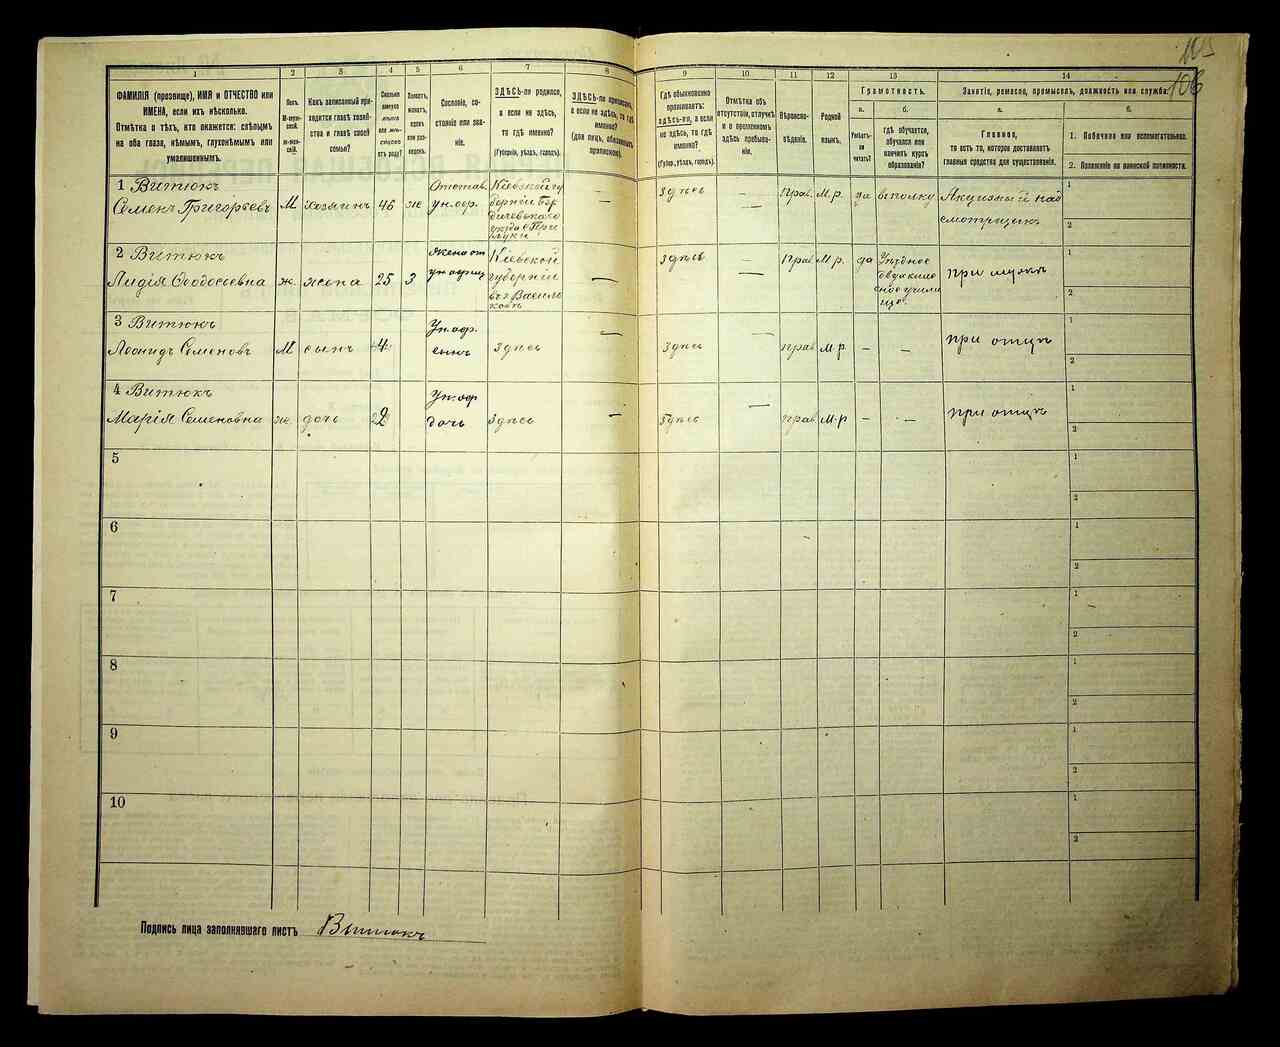 105
106
1
2
3
4
5
6
7
8
9
10
11
12
13
14
ФАМИЛІЯ (прозвище), ИМЯ и ОТЧЕСТВО или
ИМЕНА, если ихъ нѣсколько.
Отмѣтка о тѣхъ, кто окажется: слѣпымъ
на оба глаза, нѣмымъ, глухонѣмымъ или
умалишеннымъ.
Полъ.
М-мужской.
Ж-женскій.
Какъ записанный приходится главѣ хозяйства и главѣ своей семьи?
Сколько минуло лѣтъ или мѣсяцевъ отъ роду?
Холостъ, женатъ, вдовъ или разведенъ.
Сословіе, состояніе или званіе.
ЗДѢСЬ-ли родился,
а если не здѣсь,
то гдѣ именно?
(Губернія, уѣздъ, городъ).
ЗДѢСЬ-ли приписанъ,
а если не здѣсь, то гдѣ
именно?
(для лицъ, обязанныхъ
припискою).
Гдѣ обыкновенно
проживаетъ:
здѣсь-ли, а если
не здѣсь, то гдѣ
именно?
(Губерн., уѣздъ, городъ).
Отмѣтка объ
отсутствіи, отлучкѣ
и о временномъ
здѣсь пребываніи.
Вѣроисповѣданіе.
Родной
языкъ.
Грамотность.
а.
б.
Умѣетъ-ли читать?
гдѣ обучается,
обучался или
кончилъ курсъ
образованія?
Занятіе, ремесло, промыселъ, должность или служба.
а.
б.
Главное,
то есть то, которое доставляетъ
главныя средства для существованія.
1. Побочное или вспомогательное.
2. Положеніе по воинской повинности.
1 Витюкъ
Семенъ Григорьевъ М хозяинъ 46 ж Отстав. ун. офр. Кіевской губерніи Бердичевскаго уѣзда с Прилуки — здѣсь — Прав. М.р. да въ полку Акцизный надсмотрщикъ
1
2
2 Витюкъ
Лидія Ѳеодосьевна ж. жена 25 з жена от ун офиц Кіевской губерніи въ г Васильковѣ — здѣсь — Прав М.р. да Уѣздное двухкласное училище. при мужѣ
1
2
3 Витюкъ
Леонидъ Семеновъ М сынъ 4 Ун. офр. сынъ здѣсь — здѣсь — прав М.р. — — при отцѣ
1
2
4 Витюкъ
Марія Семеновна ж. дочь 2 Ун. оф дочь здѣсь — здѣсь — прав М.р — — при отцѣ
1
2
5
1
2
6
1
2
7
1
2
8
1
2
9
1
2
10
1
2
Подпись лица заполнявшаго листъ Витюкъ